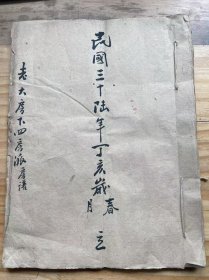 民國三十陆年丁亥歲春月 立
老大房下四房派房譜